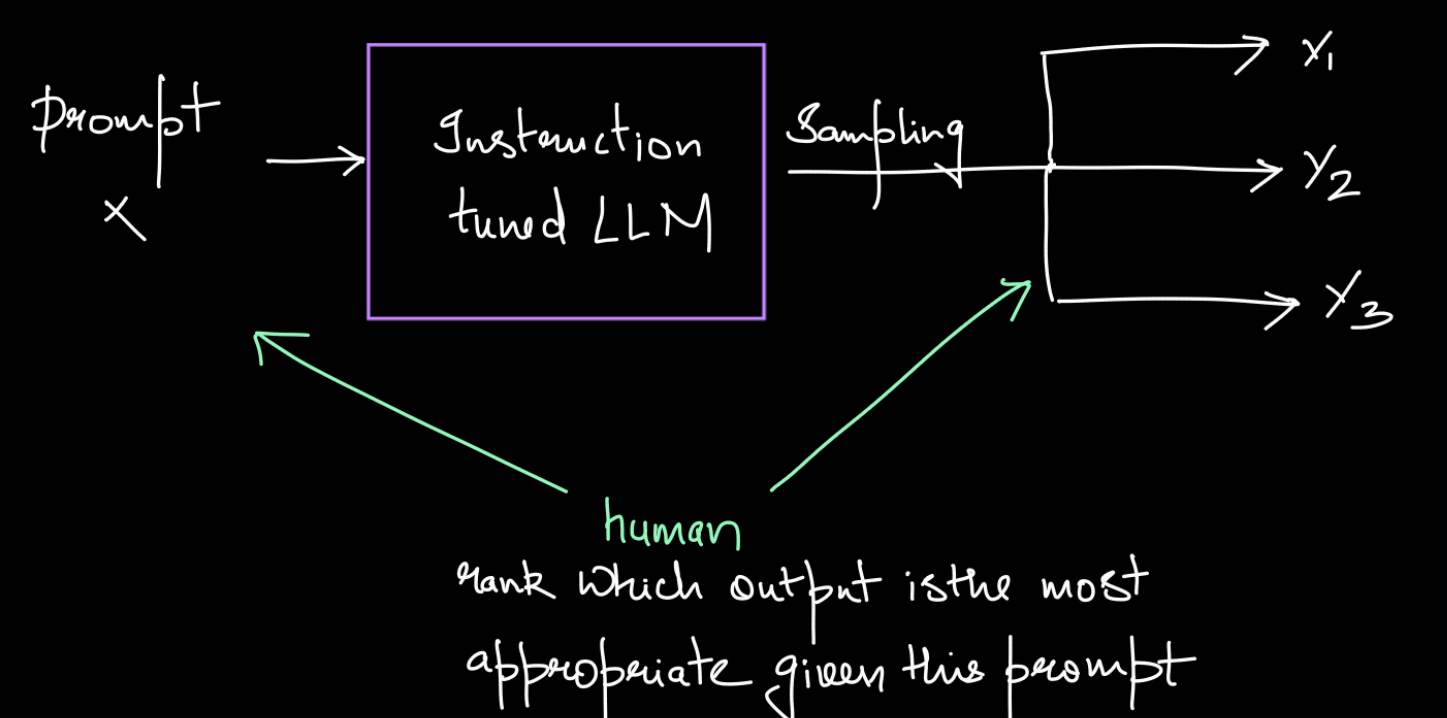 prompt
x
Instruction
tuned LLM
Sampling
y1
y2
y3
human
rank which output is the most
appropriate given this prompt